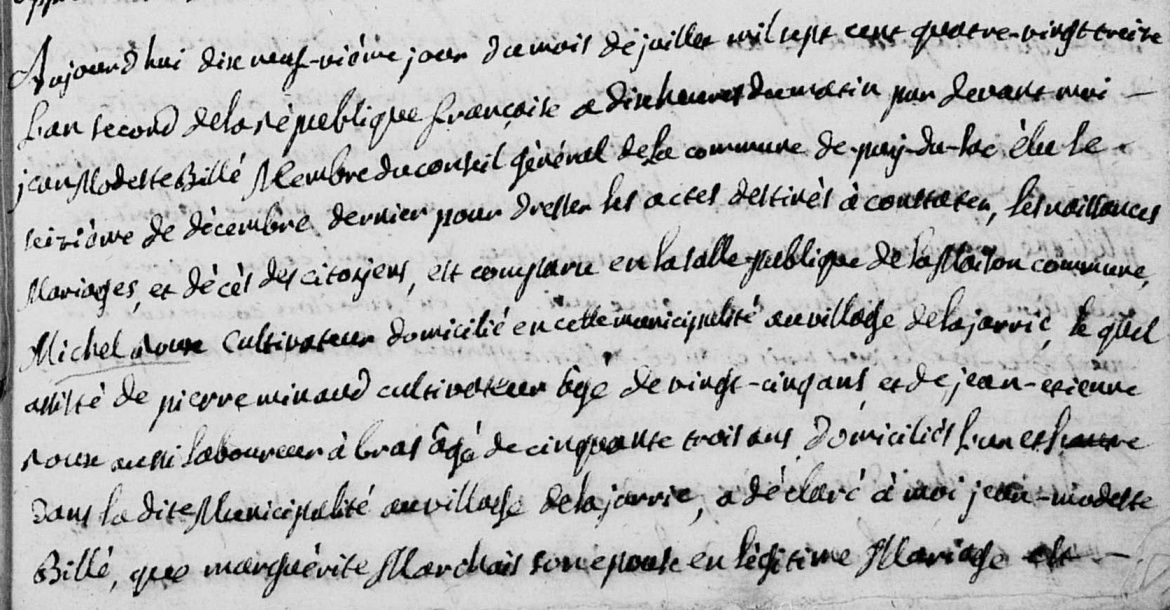 Aujourd hui dix neuf-vième jour du mois de juillet mil sept cent quatre-vingt treize
L'an second de la république française a dix heures du matin par devant moi —
jean Modeste Billé Membre du conseil général de la commune de puy-du-lac élu le
seizième de décembre dernier pour dresser les actes destinés à constater, les naissances
Mariages, et décès des citoyens, est comparu en la salle publique de la Maison commune,
Michel Roux Cultivateur domicilié en cette municipalité au village de la jarrie, le quel
assisté de pierre minaud cultivateur âgé de vingt-cinq ans, et de jean-etienne
roux aussi laboureur à bras âgé de cinquante trois ans, Domiciliés l'un et l'autre
Dans la dite Municipalité au village de la jarrie, a déclaré à moi jean-modeste
Billé, que marguérite Marchais son epouse en légitime Mariage est —